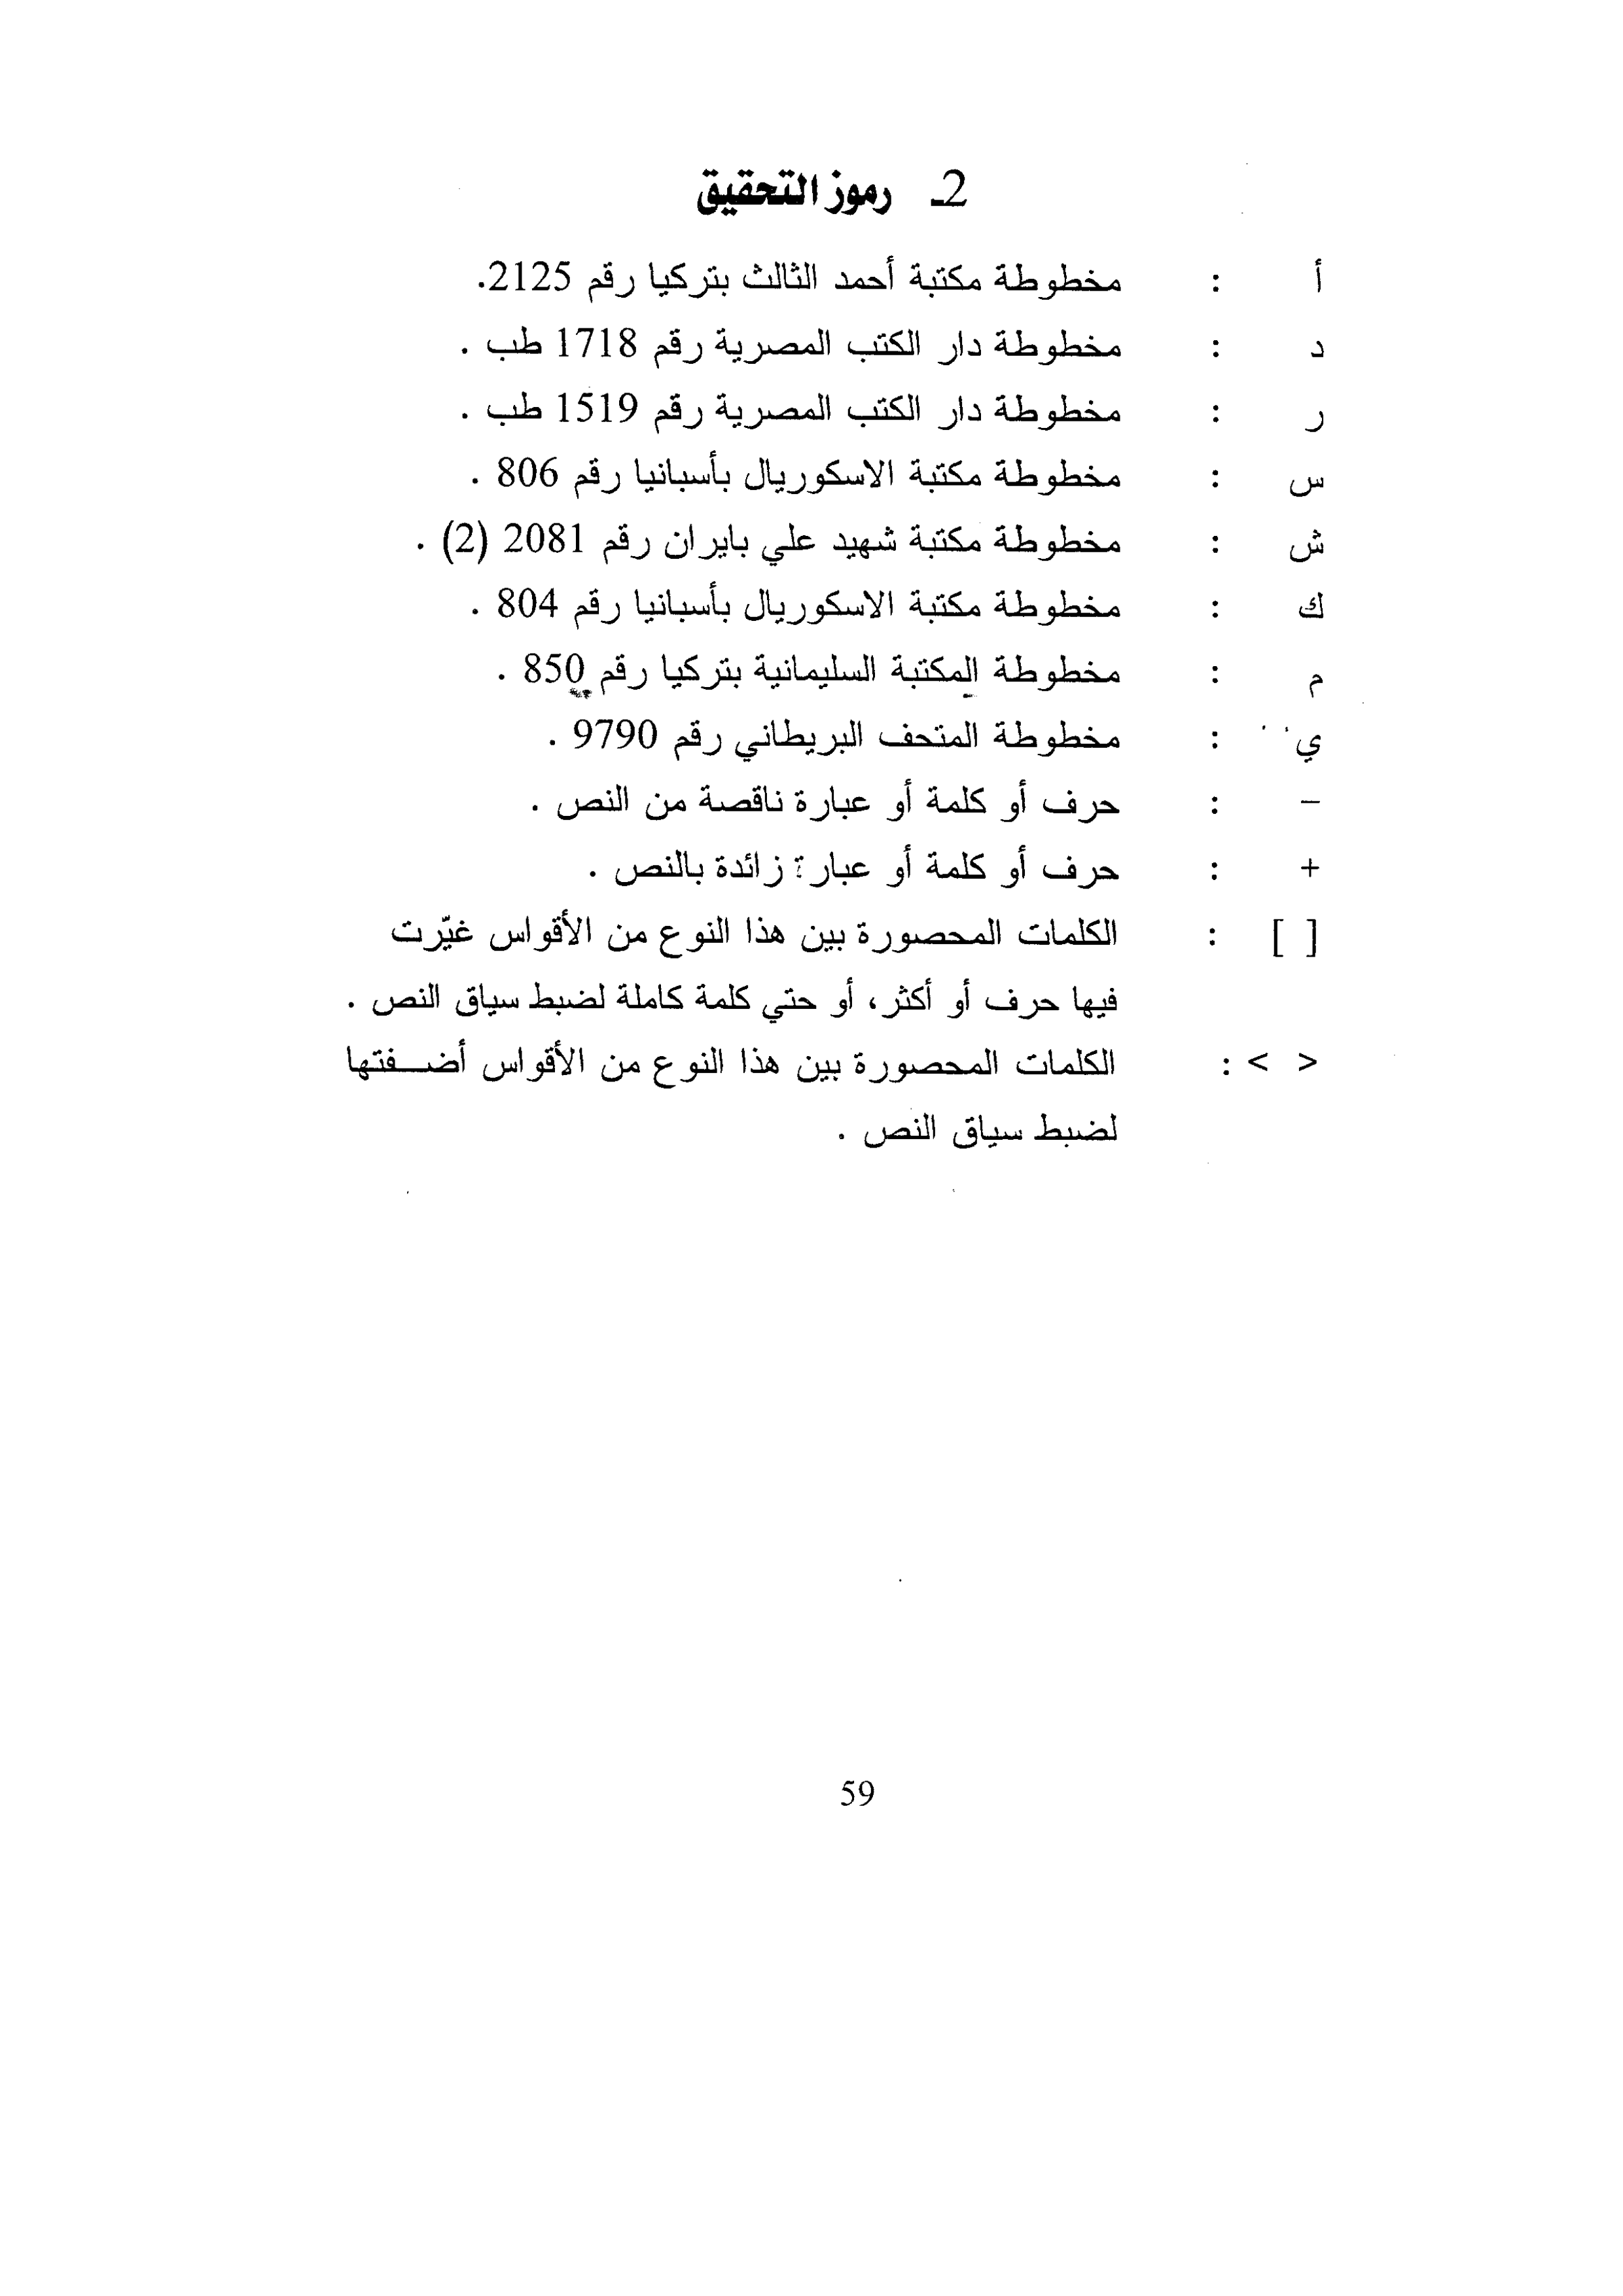 2ـ رموز التحقيق
أ : مخطوطة مكتبة أحمد الثالث بتركيا رقم 2125.
د : مخطوطة دار الكتب المصرية رقم 1718 طب .
ر : مخطوطة دار الكتب المصرية رقم 1519 طب .
س : مخطوطة مكتبة الاسكوريال بأسبانيا رقم 806 .
ش : مخطوطة مكتبة شهيد علي بايران رقم 2081 (2) .
ك : مخطوطة مكتبة الاسكوريال بأسبانيا رقم 804 .
م : مخطوطة المكتبة السليمانية بتركيا رقم 850 .
ي : مخطوطة المتحف البريطاني رقم 9790 .
– : حرف أو كلمة أو عبارة ناقصة من النص .
+ : حرف أو كلمة أو عبارة زائدة بالنص .
[ ] : الكلمات المحصورة بين هذا النوع من الأقواس غيّرت
فيها حرف أو أكثر، أو حتي كلمة كاملة لضبط سياق النص .
< > : الكلمات المحصورة بين هذا النوع من الأقواس أضـــفتها
لضبط سياق النص .
59